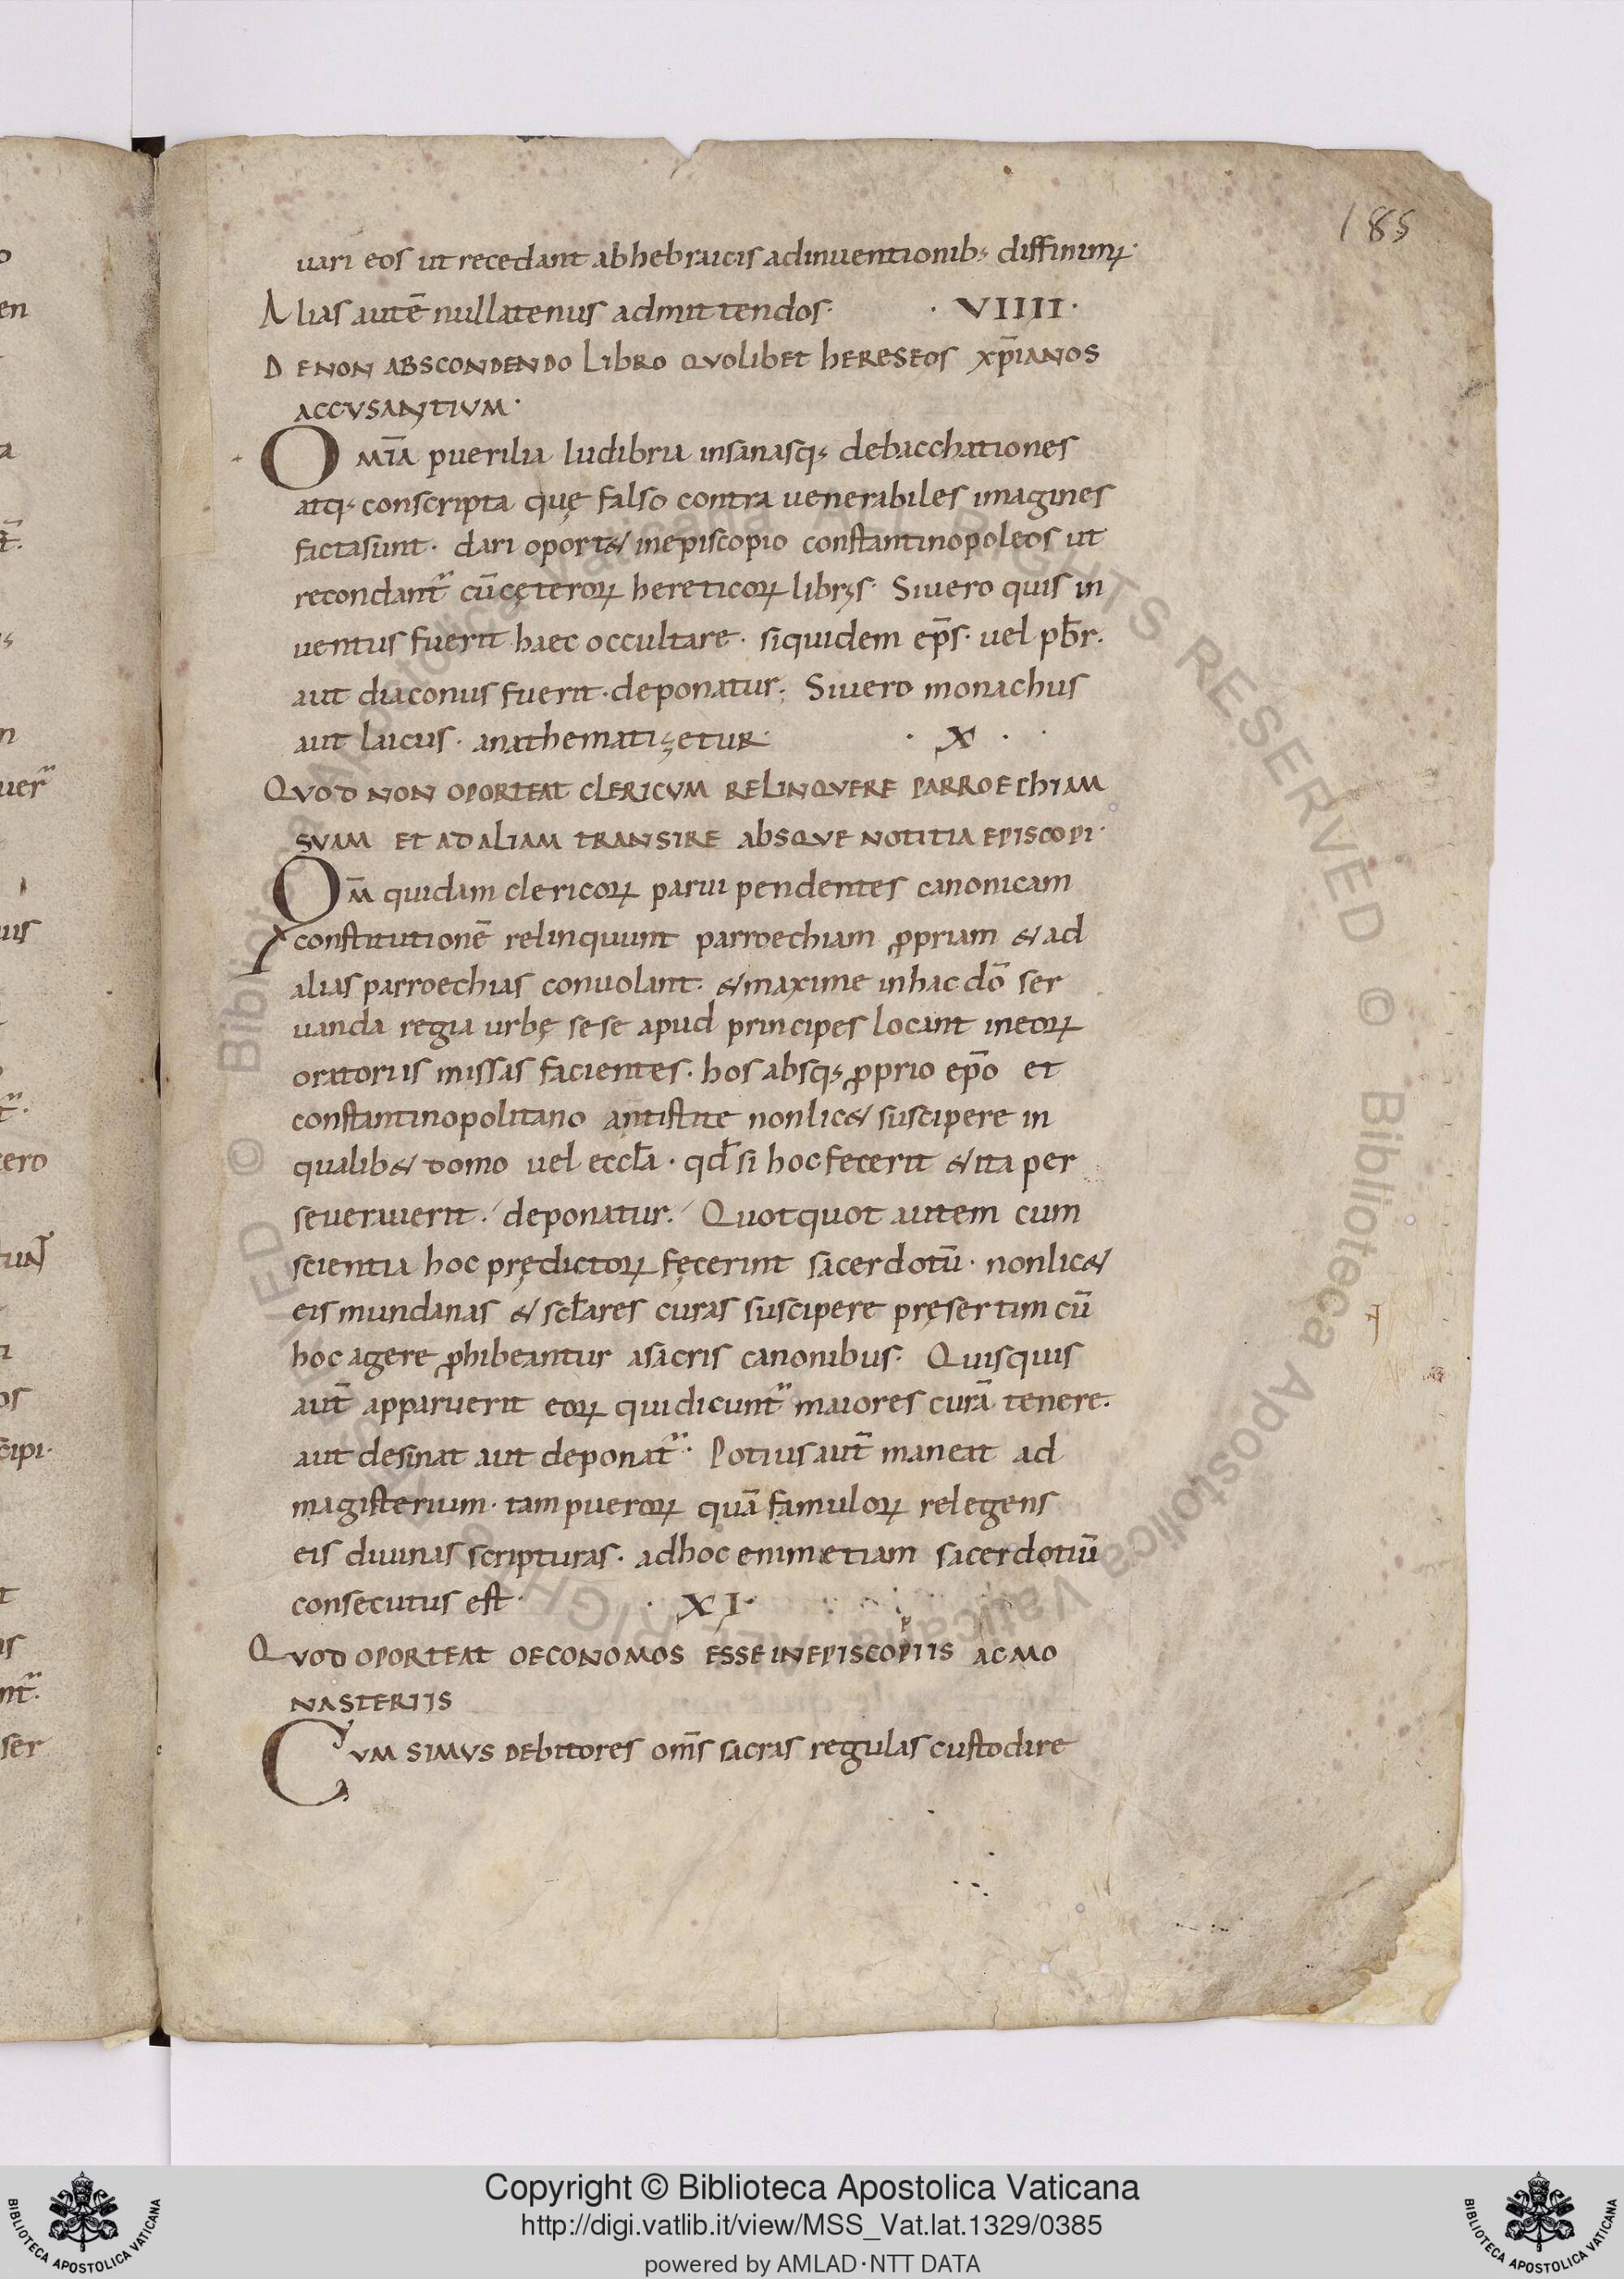 185
uari eos ut recedant ab hebraicis adinuentionib; diffinimꝰ·
Alias autē nullatenus admittendos· · VIIII ·
DE NON ABSCONDENDO LIBRO QVOLIBET HERESEOS XP̄IANOS
ACCVSANTIVM·
OMĪA puerilia ludibria insanasq; debacchationes
atq; conscripta quę falso contra uenerabiles imagines
facta sunt · dari oport& in episcopio constantinopoleos ut
recondant᷑ cū cęteroꝝ hereticoꝝ libris· Si uero quis in
uentus fuerit haec occultare · siquidem ep̄s · uel pb̄r·
aut diaconus fuerit · deponatur; Si uero monachus
aut laicus · anathematizetur· · X ·
QVOD NON OPORTEAT CLERICVM RELINQVERE PARROECHIAM
SVAM ET AD ALIAM TRANSIRE ABSQVE NOTITIA EPISCOPI·
QM̄ quidam clericoꝝ parui pendentes canonicam
constitutionē relinquunt parroechiam ꝓpriam & ad
alias parroechias conuolant· & maxime in hac dō ser
uanda regia urbę sese apud principes locant in eoꝝ
oratoriis missas facientes · hos absq; ꝓprio ep̄o et
constantinopolitano antistite non lic& suscipere in
qualib& domo uel eccl̄a · qd̄ si hoc fecerit & ita per
seuerauerit · deponatur · Quotquot autem cum
scientia hoc prędictoꝝ fęcerint sacerdotū · non lic&
eis mundanas & scl̄ares curas suscipere pręsertim cū
hoc agere ꝓhibeantur a sacris canonibus· Quisquis
aut̄ apparuerit eoꝝ qui dicunt᷑ maiores curā tenere·
aut desinat aut deponat᷑· Potius aut̄ maneat ad
magisterium · tam pueroꝝ quā famuloꝝ relegens
eis diuinas scripturas · ad hoc enim etiam sacerdotiū
consecutus est · · XI ·
QVOD OPORTEAT OECONOMOS ESSE IN EPISCOPIIS AC MO
NASTERIIS
CVM SIMVS DEBITORES om̄s sacras regulas custodire
Copyright © Biblioteca Apostolica Vaticana
http://digi.vatlib.it/view/MSS_Vat.lat.1329/0385
powered by AMLAD·NTT DATA
BIBLIOTECA APOSTOLICA VATICANA
BIBLIOTECA APOSTOLICA VATICANA